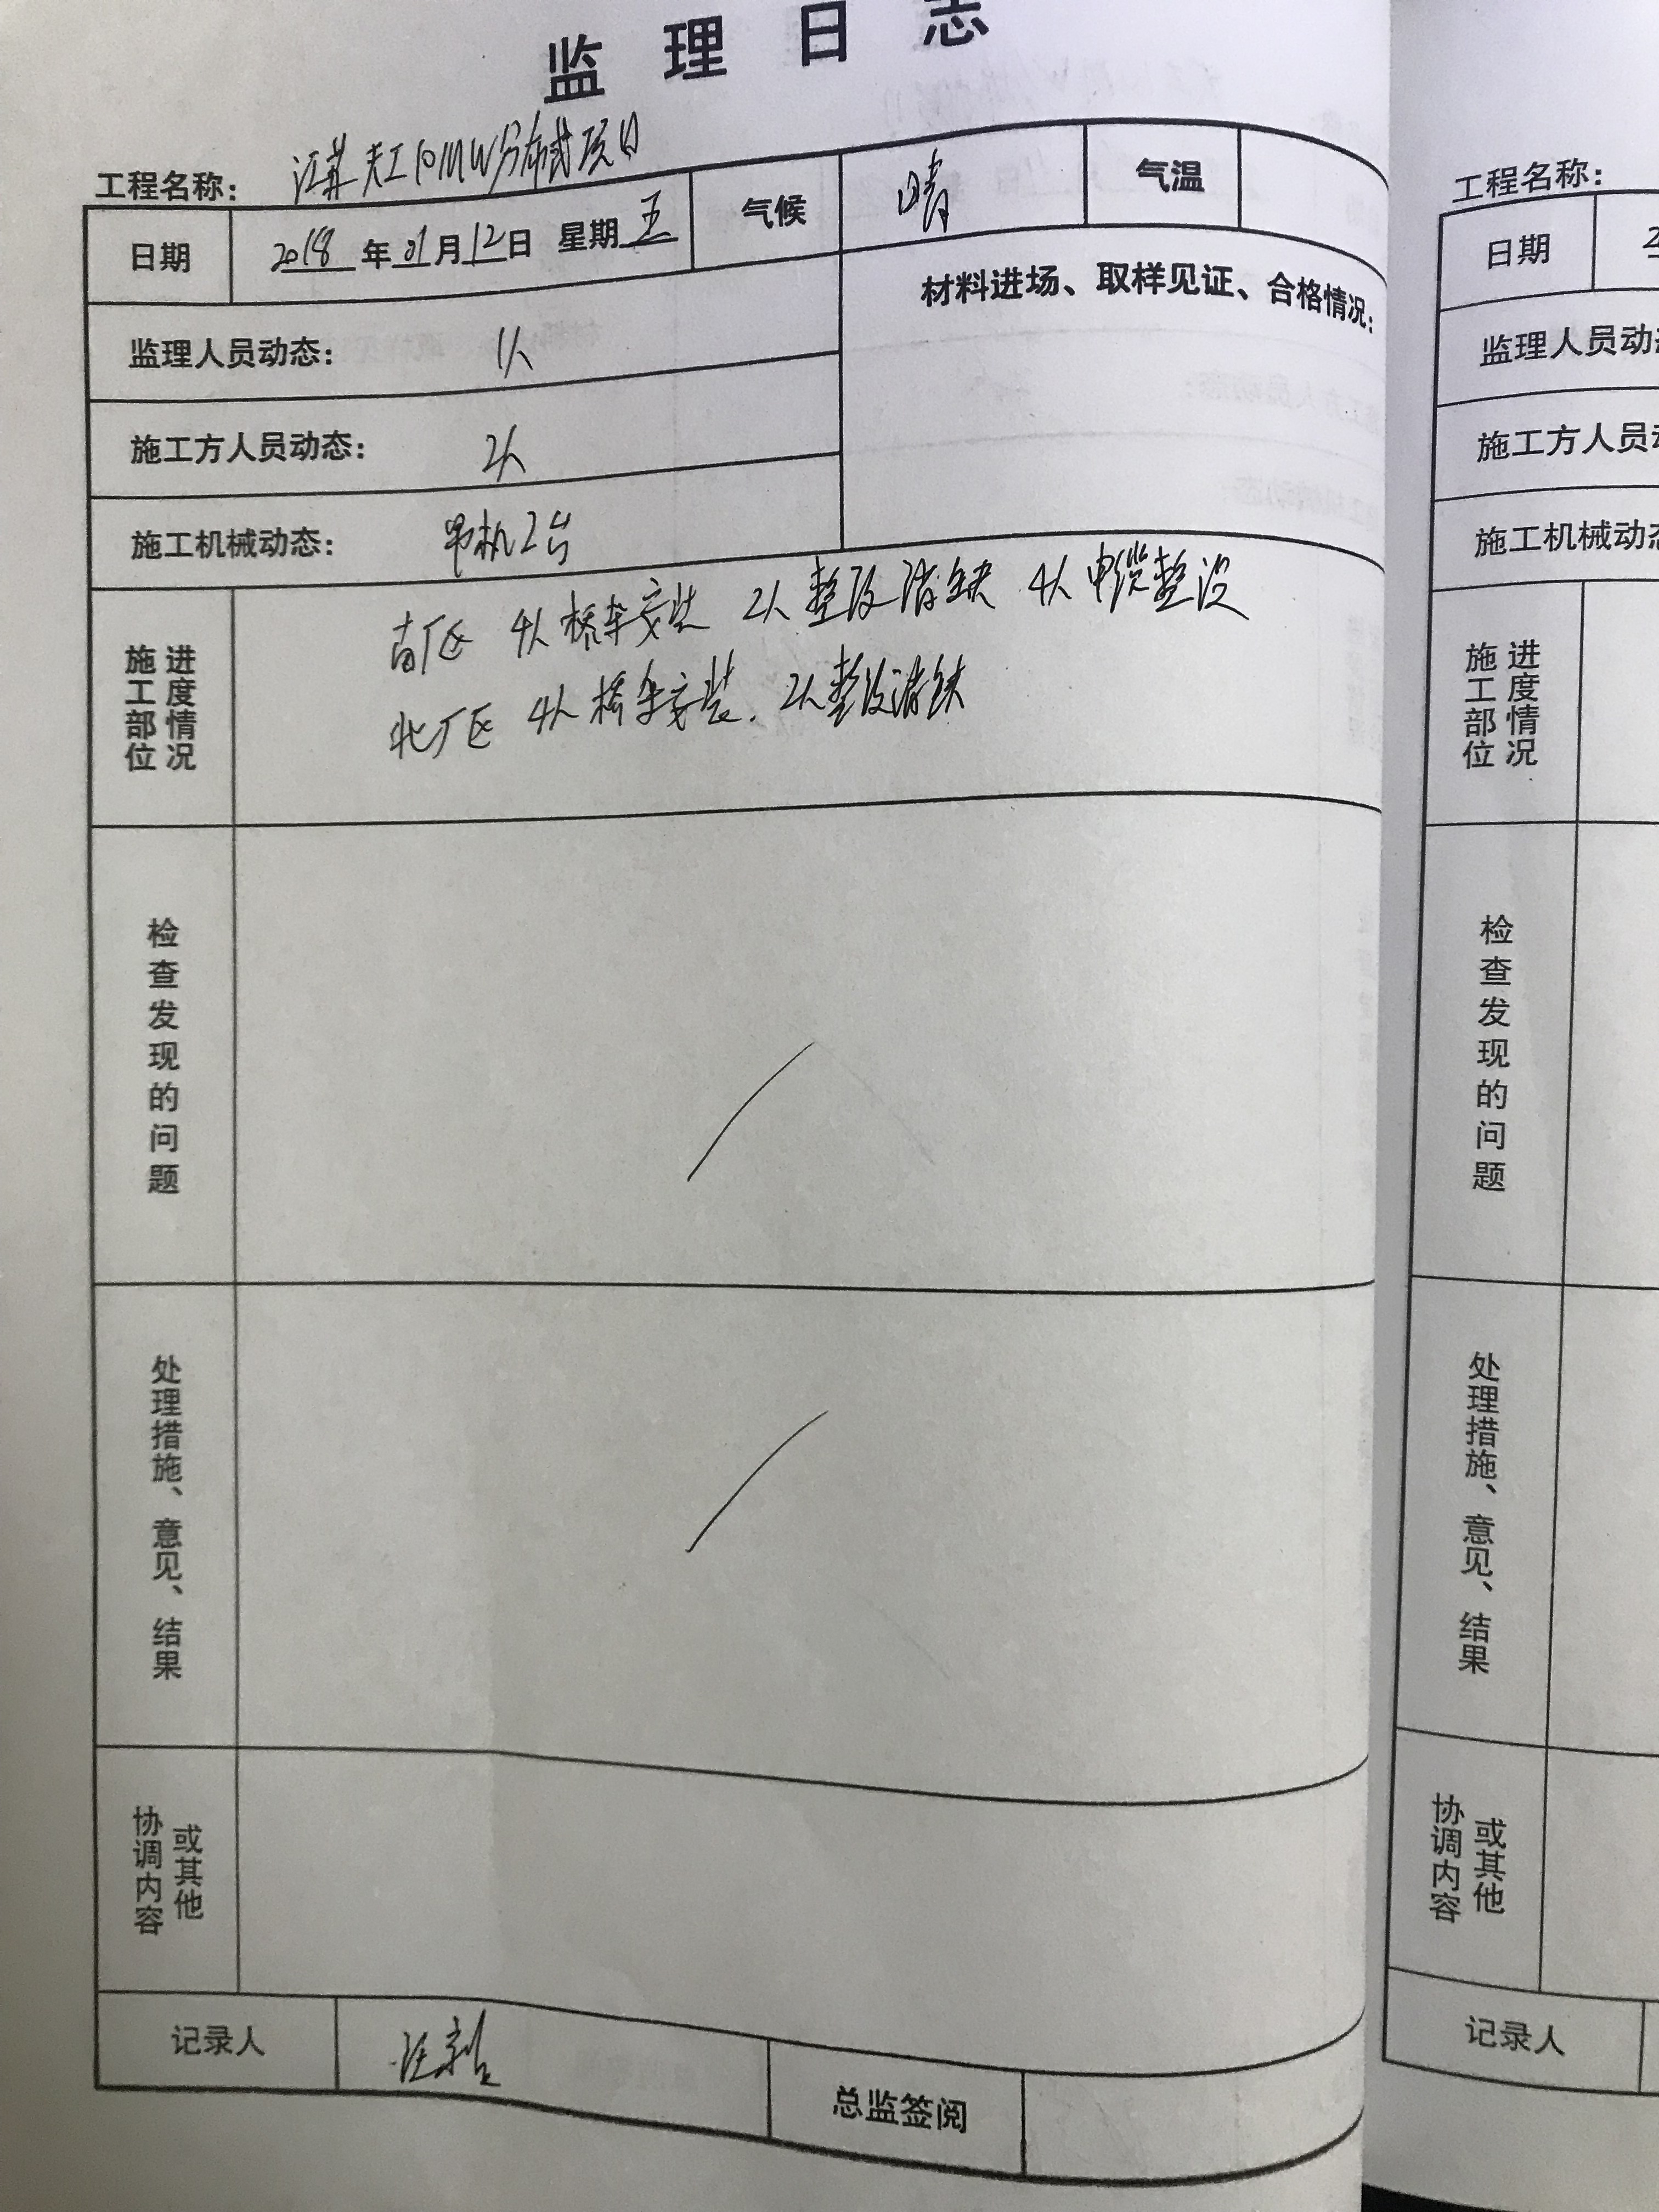 监理日志
工程名称： 江苏天工10MW分布式项目
日期 2018年01月12日 星期五 气候 晴 气温
监理人员动态： 1人
材料进场、取样见证、合格情况：
施工方人员动态： 2人
施工机械动态： 吊机2台
施工部位 进度情况
南厂区 4人桥架安装 2人整改消缺 4人电缆整设
北厂区 4人桥架安装. 2人整改消缺
检查发现的问题
处理措施、意见、结果
协调内容 或其他
记录人
总监签阅
工程名称：
日期 2
监理人员动
施工方人员
施工机械动态
施工部位 进度情况
检查发现的问题
处理措施、意见、结果
协调内容 或其他
记录人